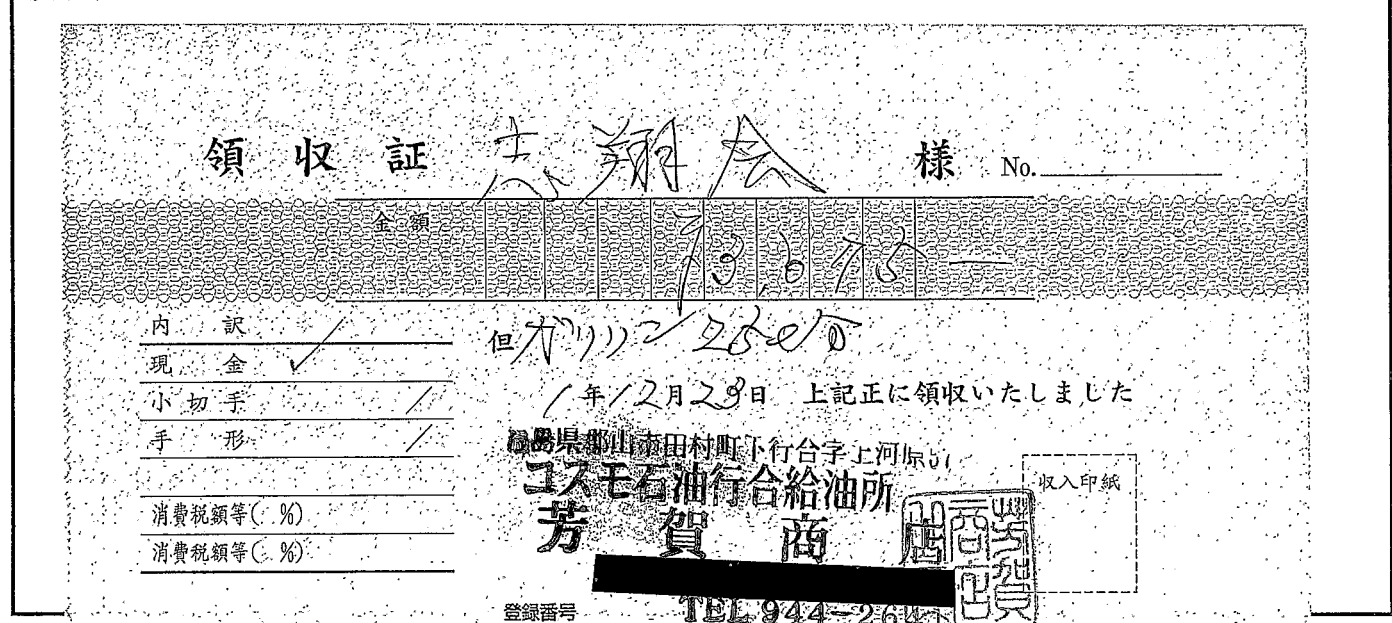 領収証 志翔会 様 No.
金額 ¥3,675—
内訳
現金 ✓
小切手 /
手形 /
消費税額等( %)
消費税額等( %)
但 ガソリン 25ℓ分
1年12月23日 上記正に領収いたしました
福島県郡山市田村町下行合字上河原
コスモ石油行合給油所
芳賀商店
芳賀商店
収入印紙
登録番号
TEL 944-264